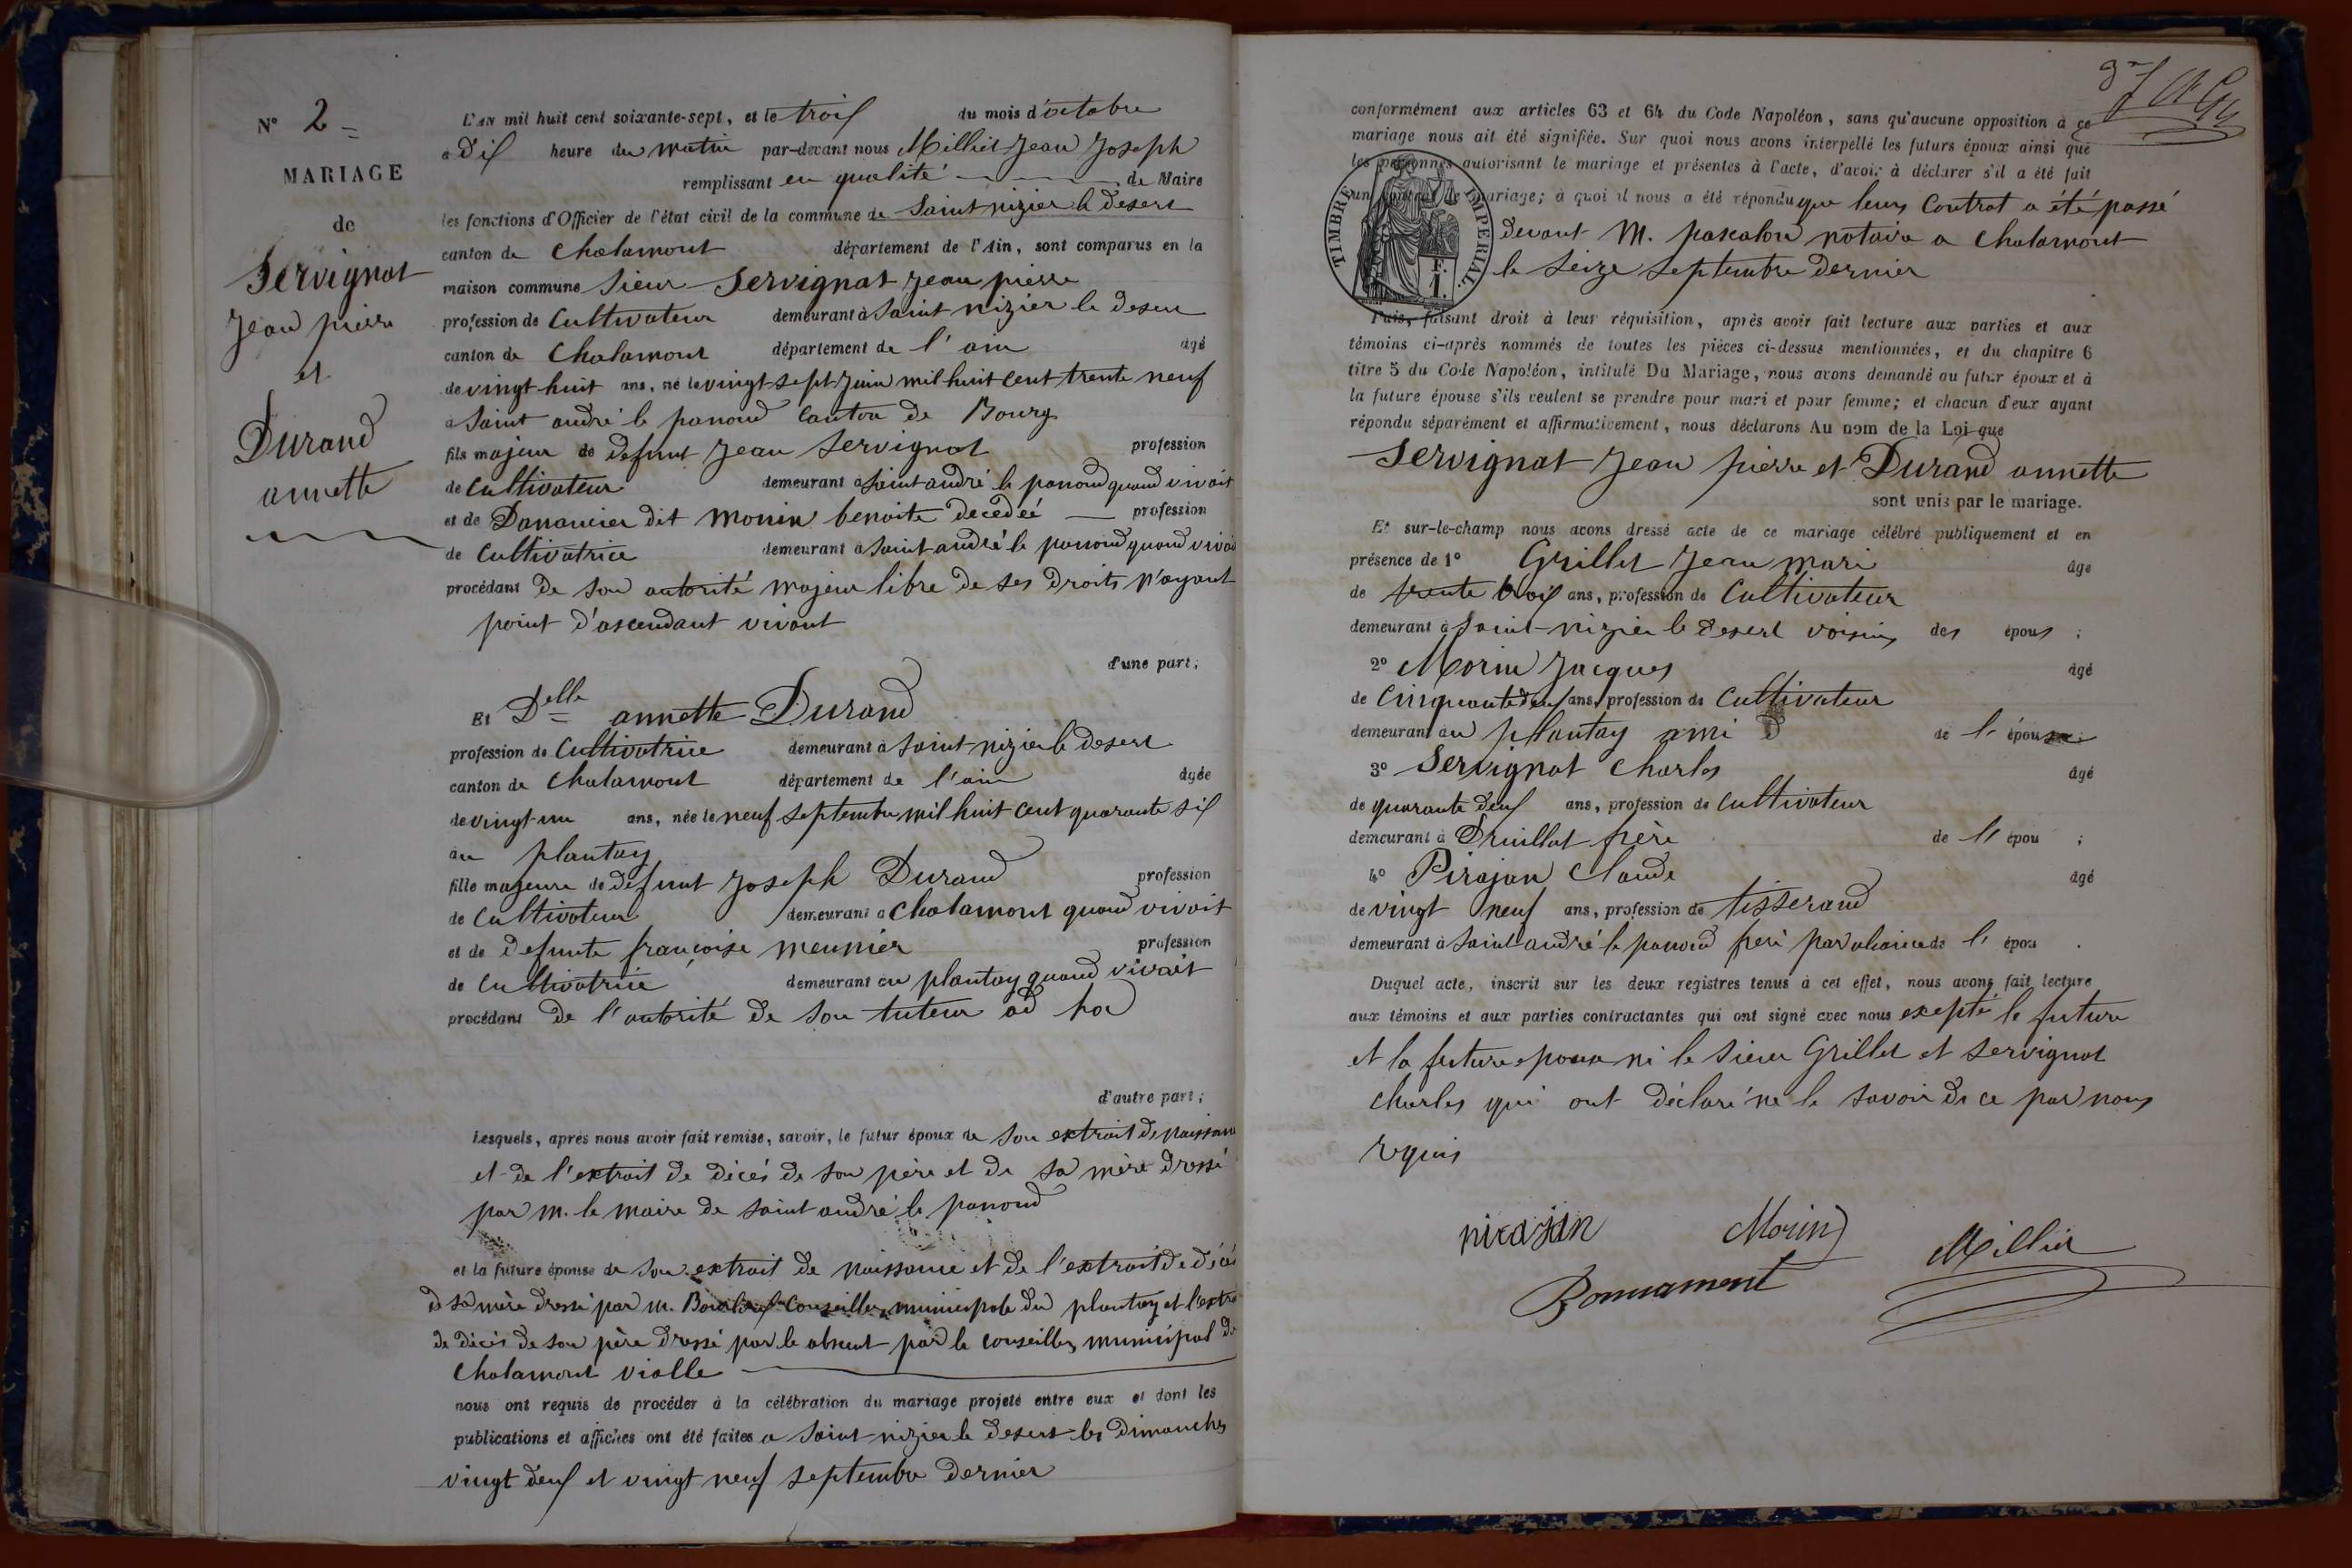 N° 2
MARIAGE
de
Servignat
Jean pierre
et
Durand
annette
L'AN mil huit cent soixante-sept, et le trois du mois d'octobre
à dix heure du matin par-devant nous Milliet Jean Joseph
remplissant en qualité de Maire
les fonctions d'Officier de l'état civil de la commune de Saint nizier le desert
canton de Chalamont département de l'Ain, sont comparus en la
maison commune Sieur Servignat Jean pierre
profession de Cultivateur demeurant à Saint nizier le desert
canton de Chalamont département de l'ain âgé
de vingt huit ans, né le vingt sept Juin mil huit cent trente neuf
à Saint andré le panoud Canton de Bourg
fils majeur de defunt Jean Servignat profession
de Cultivateur demeurant à Saint andré le panoud quand vivait
et de Danancier dit monin benoite decedéé profession
de Cultivatrice demeurant à Saint andré le panoud quand vivait
procédant de son autorité majeur libre de ses droits n'ayant
point d'ascendant vivant
d'une part;
Et Delle annette Durand
profession de Cultivatrice demeurant à Saint nizier le desert
canton de Chalamont département de l'ain âgée
de vingt un ans, née le neuf septembre mil huit cent quarante six
au plantay
fille majeure de defunt Joseph Durand profession
de Cultivateur demeurant à Chalamont quand vivait
et de defunte françoise meunier profession
de Cultivatrice demeurant au plantay quand vivait
procédant de l'autorité de son tuteur ad hoc
d'autre part;
Lesquels, après nous avoir fait remise, savoir, le futur époux de son extrait de naissance
et de l'extrait de décés de son père et de sa mère dressé
par m. le maire de Saint andré le panoud
et la future épouse de son extrait de naissance et de l'extrait de décés
d sa mère dressé par m. Conseiller municipale du plantay et l'extrait
de décés de son père dressé par le absent par le conseiller municipal de
Chalamont violle
nous ont requis de procéder à la célébration du mariage projeté entre eux et dont les
publications et affiches ont été faites a Saint nizier le desert les dimanches
vingt deux et vingt neuf septembre dernier
conformément aux articles 63 et 64 du Code Napoléon, sans qu'aucune opposition à ce
mariage nous ait été signifiée. Sur quoi nous avons interpellé les futurs époux ainsi que
les personnes autorisant le mariage et présentes à l'acte, d'avoir à déclarer s'il a été fait
un contrat de mariage; à quoi il nous a été répondu que leurs Contrat a été passé
devant M. pascalon notaire a Chalamont
le seize septembre dernier
TIMBRE IMPERIAL
F.
1.
Puis, faisant droit à leur réquisition, après avoir fait lecture aux parties et aux
témoins ci-après nommés de toutes les pièces ci-dessus mentionnées, et du chapitre 6
titre 5 du Code Napoléon, intitulé Du Mariage, nous avons demandé au futur époux et à
la future épouse s'ils veulent se prendre pour mari et pour femme; et chacun d'eux ayant
répondu séparément et affirmativement, nous déclarons Au nom de la Loi que
Servignat Jean pierre et Durand annette
sont unis par le mariage.
Et sur-le-champ nous avons dressé acte de ce mariage célébré publiquement et en
présence de 1° Grillet Jean mari âgé
de trente trois ans, profession de Cultivateur
demeurant à Saint-nizier le desert voisins des épous;
2° Morin Jacques âgé
de Cinquante deux ans, profession de Cultivateur
demeurant au plantay ami de l'épou
3° Servignat Charles âgé
de quarante deux ans, profession de Cultivateur
demeurant à Druillat frère de l'épou;
4° Pirajan Claude âgé
de vingt neuf ans, profession de tisserand
demeurant à Saint andré le panoud frere par aliance de l'épou.
Duquel acte, inscrit sur les deux registres tenus à cet effet, nous avons fait lecture
aux témoins et aux parties contractantes qui ont signé avec nous exepté le future
et la future epouse ni le sieur Grillet et Servignat
Charles qui ont déclaré ne le savoir de ce par nous
requis
pirajan Morin Millier
Bonnament